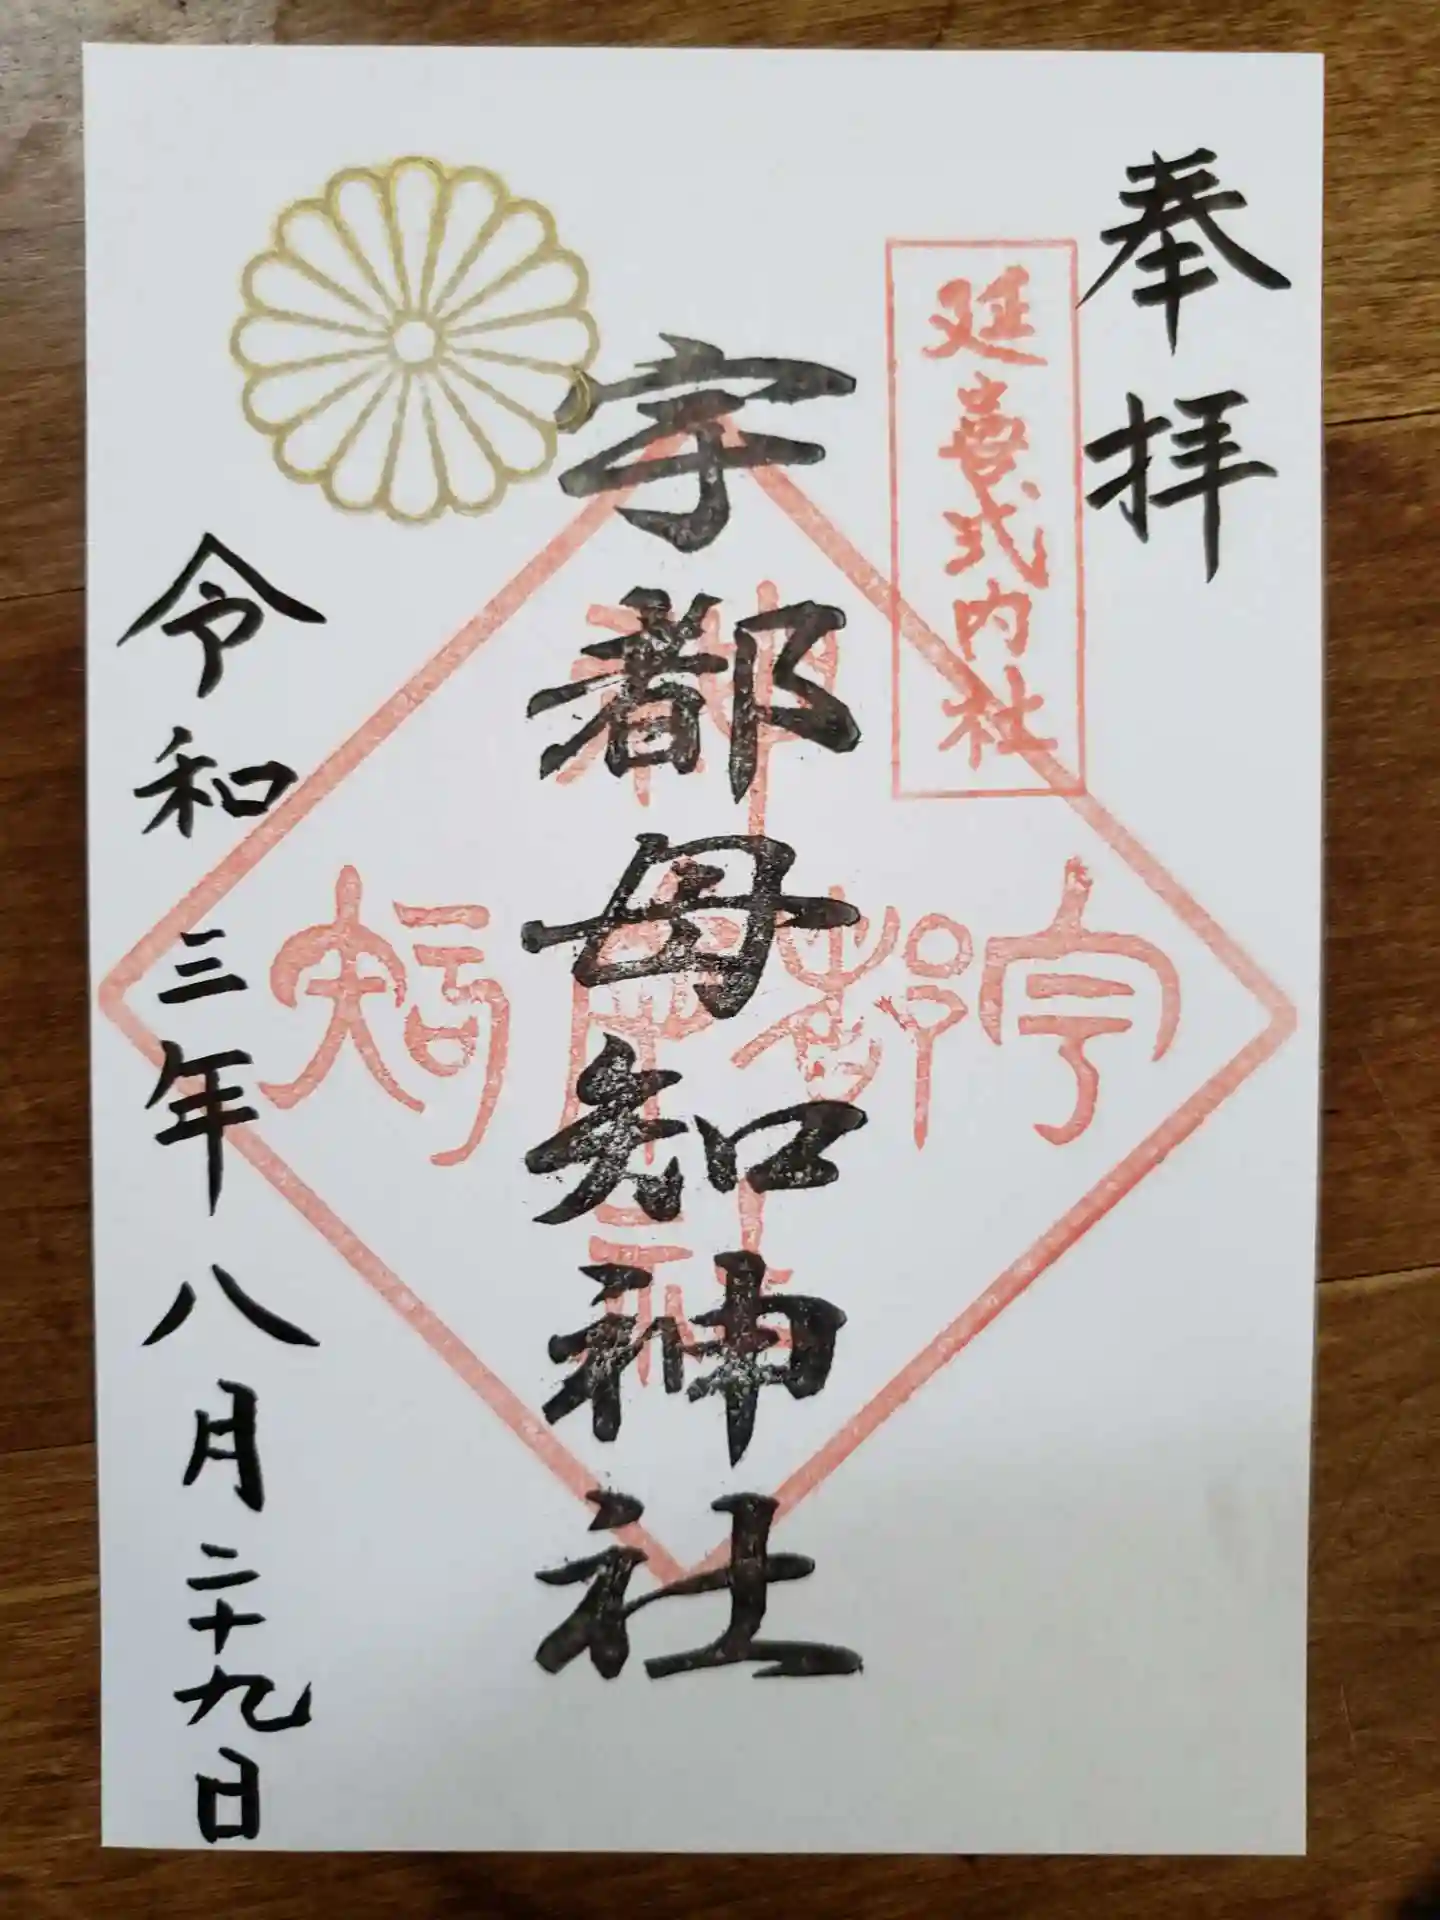 奉拝
延喜式内社
宇都母知神社
宇都母知
神社
令和三年八月二十九日